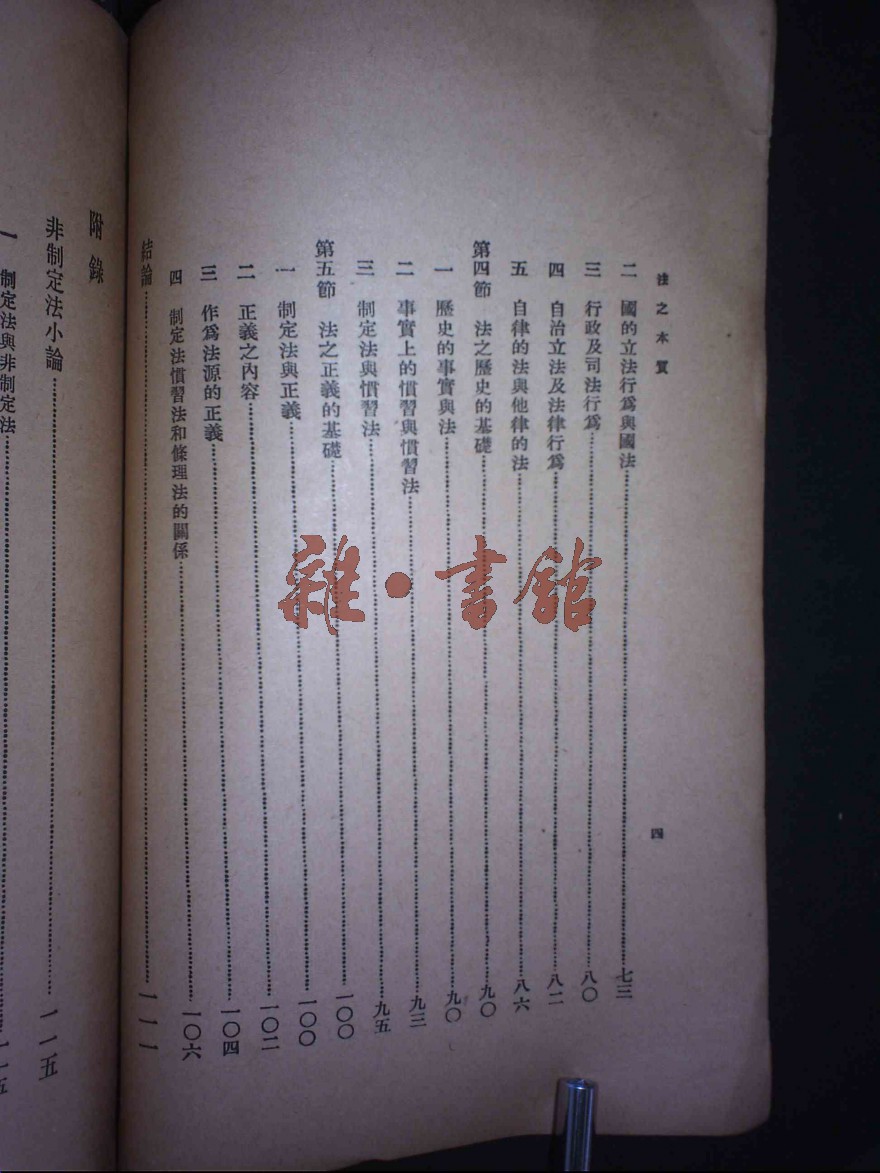 法之本質
四
二 國的立法行爲與國法……七三
三 行政及司法行爲……八〇
四 自治立法及法律行爲……八二
五 自律的法與他律的法……八六
第四節 法之歷史的基礎……九〇
一 歷史的事實與法……九〇
二 事實上的慣習與慣習法……九三
三 制定法與慣習法……九五
第五節 法之正義的基礎……一〇〇
一 制定法與正義……一〇〇
二 正義之內容……一〇二
三 作爲法源的正義……一〇四
四 制定法慣習法和條理法的關係……一〇六
結論……一一一
附錄
非制定法小論……一一五
一 制定法與非制定法……一一五
雜·書館